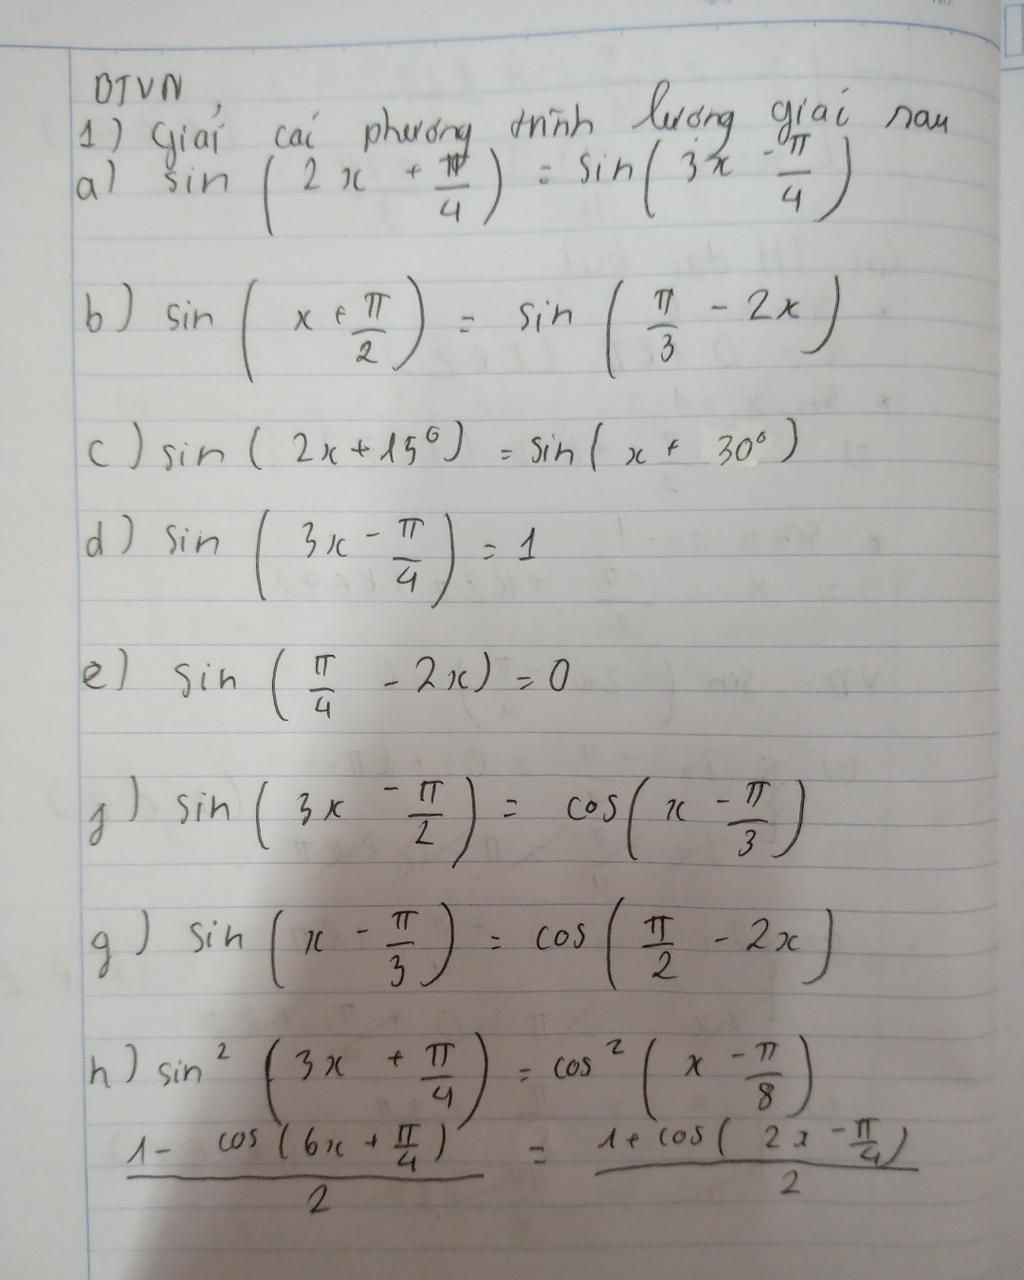 BTVN
1) Giải các phương trình lượng giác sau
a) sin(2x + π/4) = sin(3x - π/4)
b) sin(x + π/2) = sin(π/3 - 2x)
c) sin(2x + 15°) = sin(x + 30°)
d) sin(3x - π/4) = 1
e) sin(π/4 - 2x) = 0
f) sin(3x - π/2) = cos(x - π/3)
g) sin(x - π/3) = cos(π/2 - 2x)
h) sin²(3x + π/4) = cos²(x - π/8)
(1 - cos(6x + π/4))/2 = (1 + cos(2x - π/4))/2